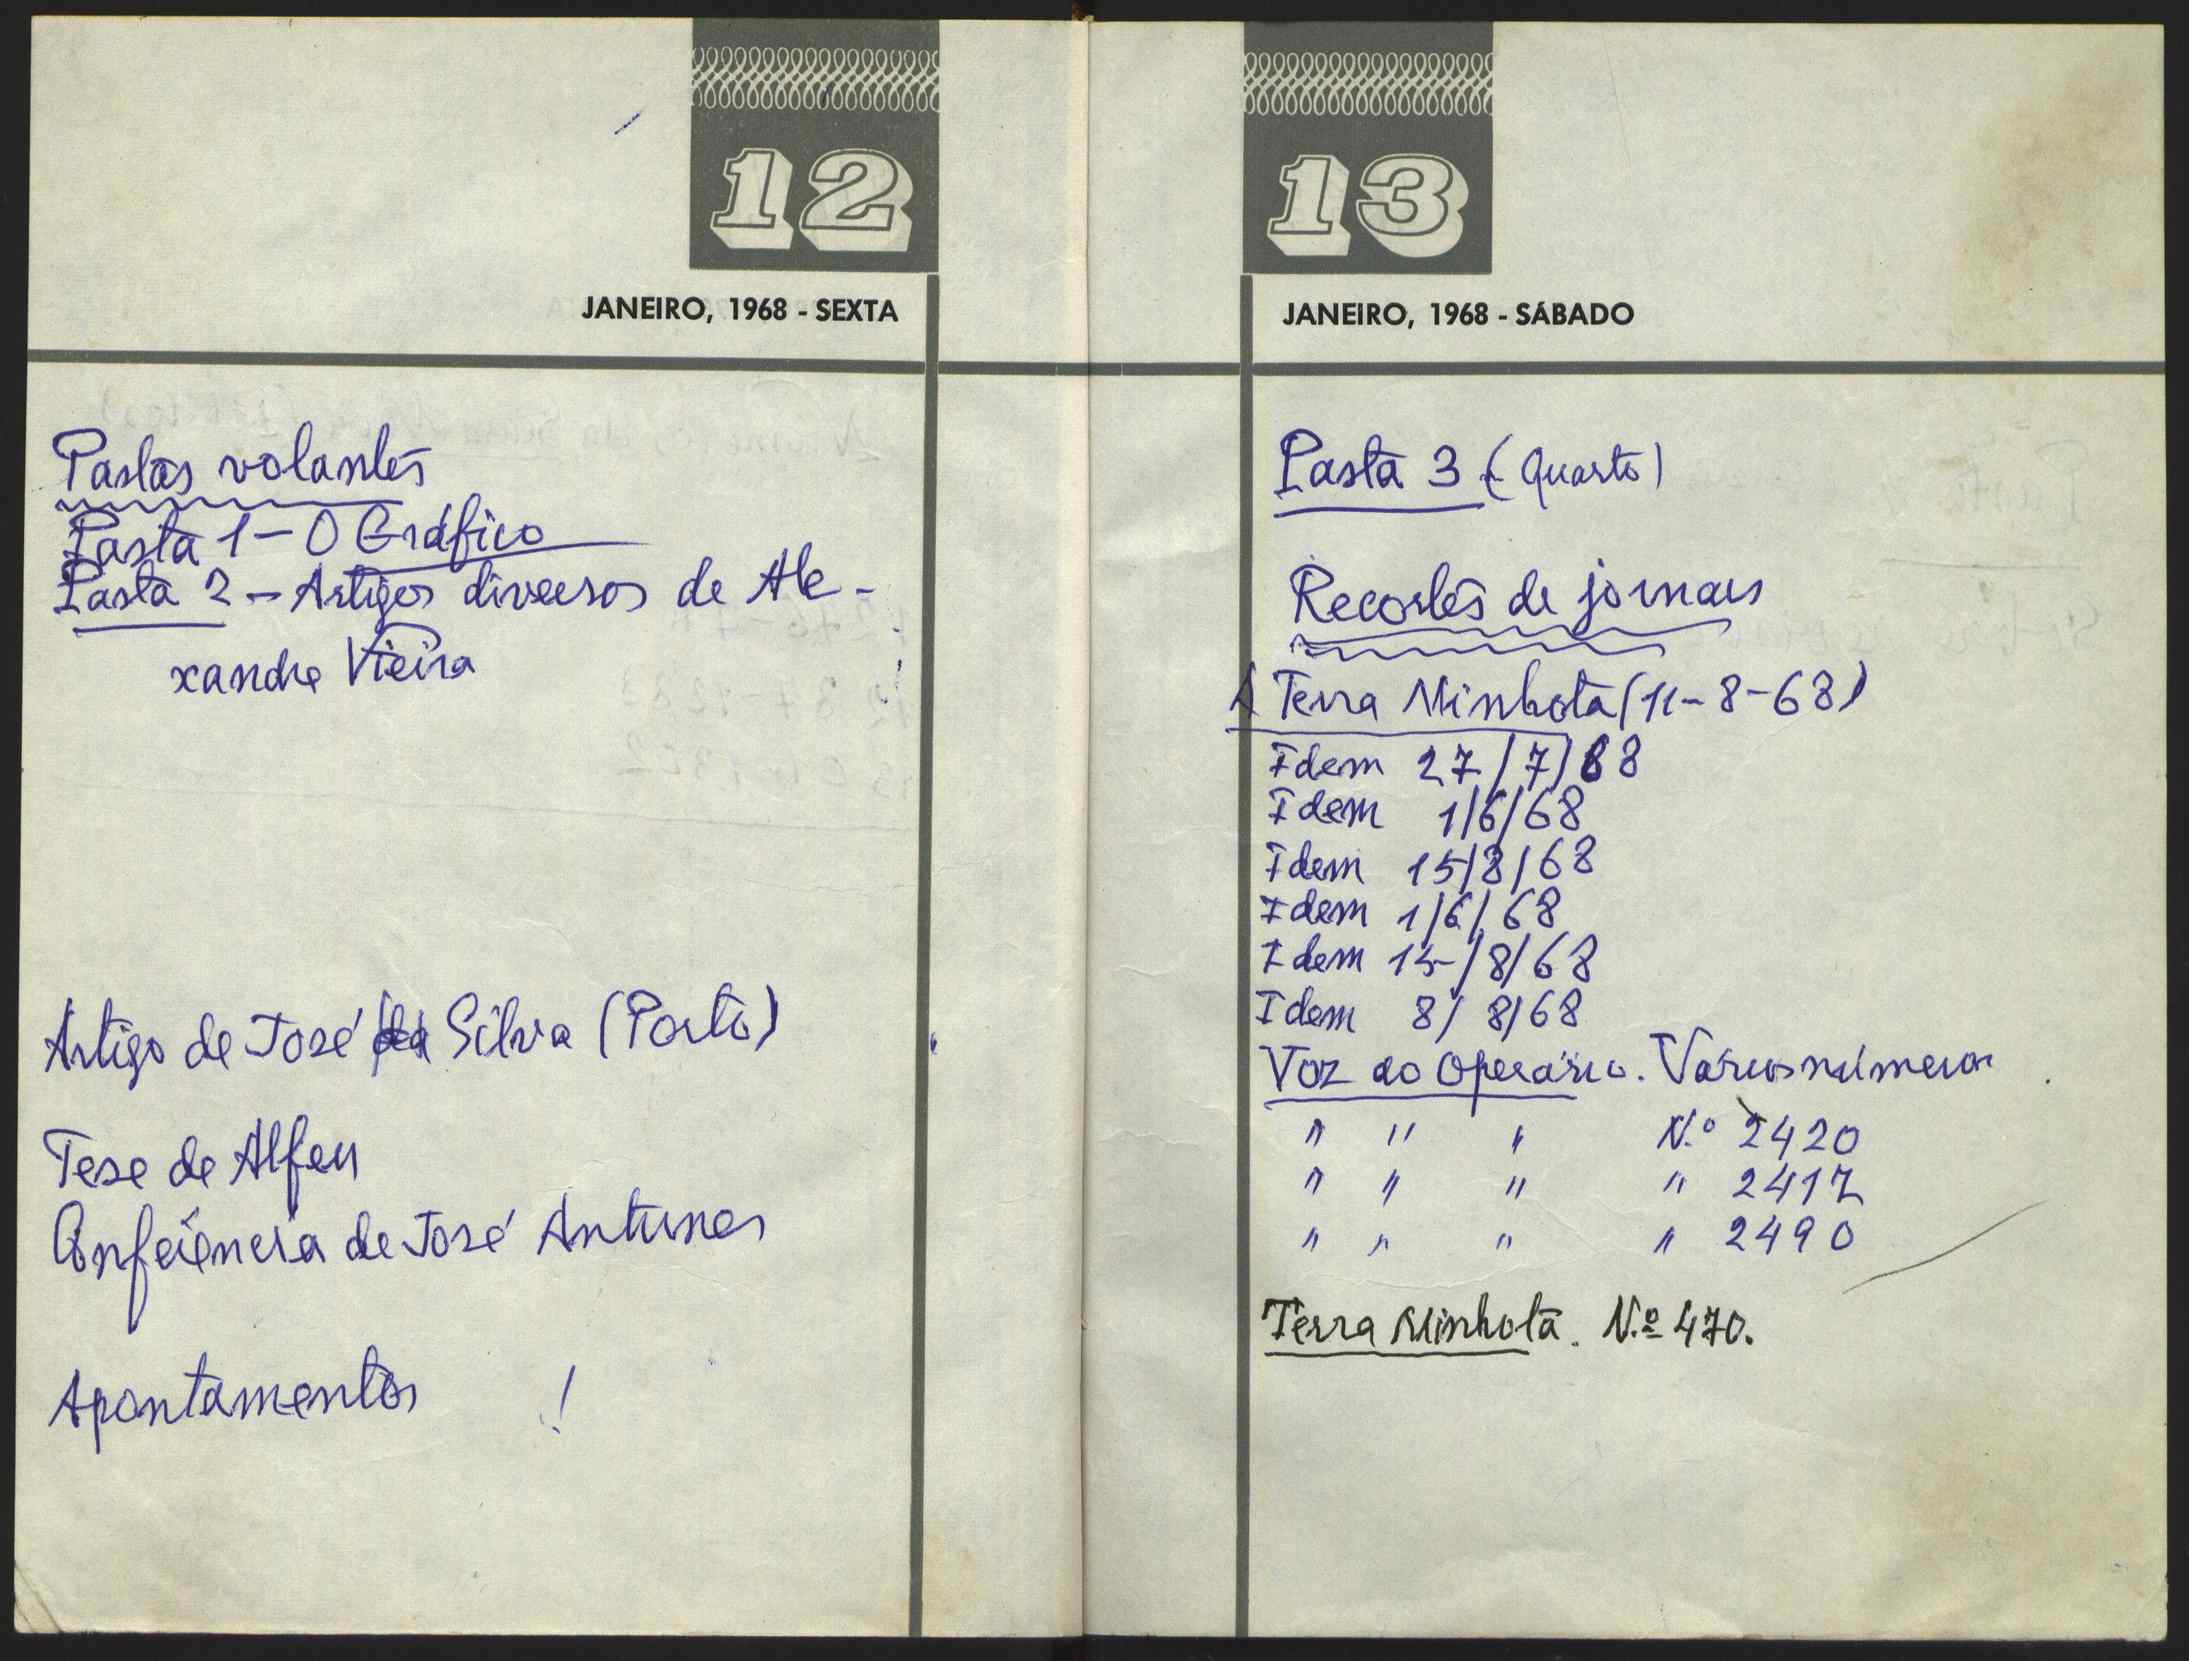 12
JANEIRO, 1968 - SEXTA
Pastas volantes
Pasta 1 - O Gráfico
Pasta 2 - Artigos diversos de Ale-
xandre Vieira
Artigo de José da Silva (Porto)
Tese de Alfeu
Conferência de José Antunes
Apontamentos !
13
JANEIRO, 1968 - SÁBADO
Pasta 3 (Quarto)
Recortes de jornais
A Terra Minhota (11-8-68)
Idem 27/7/68
Idem 1/6/68
Idem 15/8/68
Idem 1/6/68
Idem 15/8/68
Idem 8/8/68
Voz do Operário. Vários números
" " " N.º 2420
" " " " 2417
" " " " 2490
Terra Minhota. N.º 470.